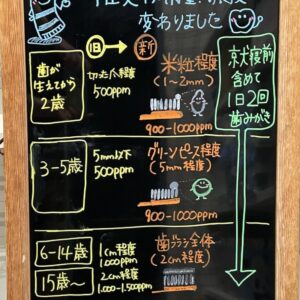 変わりました
旧
新
歯が
生えてから
2歳
切った爪程度
500ppm
米粒程度
(1~2mm)
900-1000ppm
3-5歳
5mm以下
500ppm
グリーンピース程度
(5mm程度)
900-1000ppm
6-14歳
1cm程度
1,000ppm
15歳~
2cm程度
1,000-1,500ppm
歯ブラシ全体
(2cm程度)
就寝前
含めて
1日2回
歯みがき